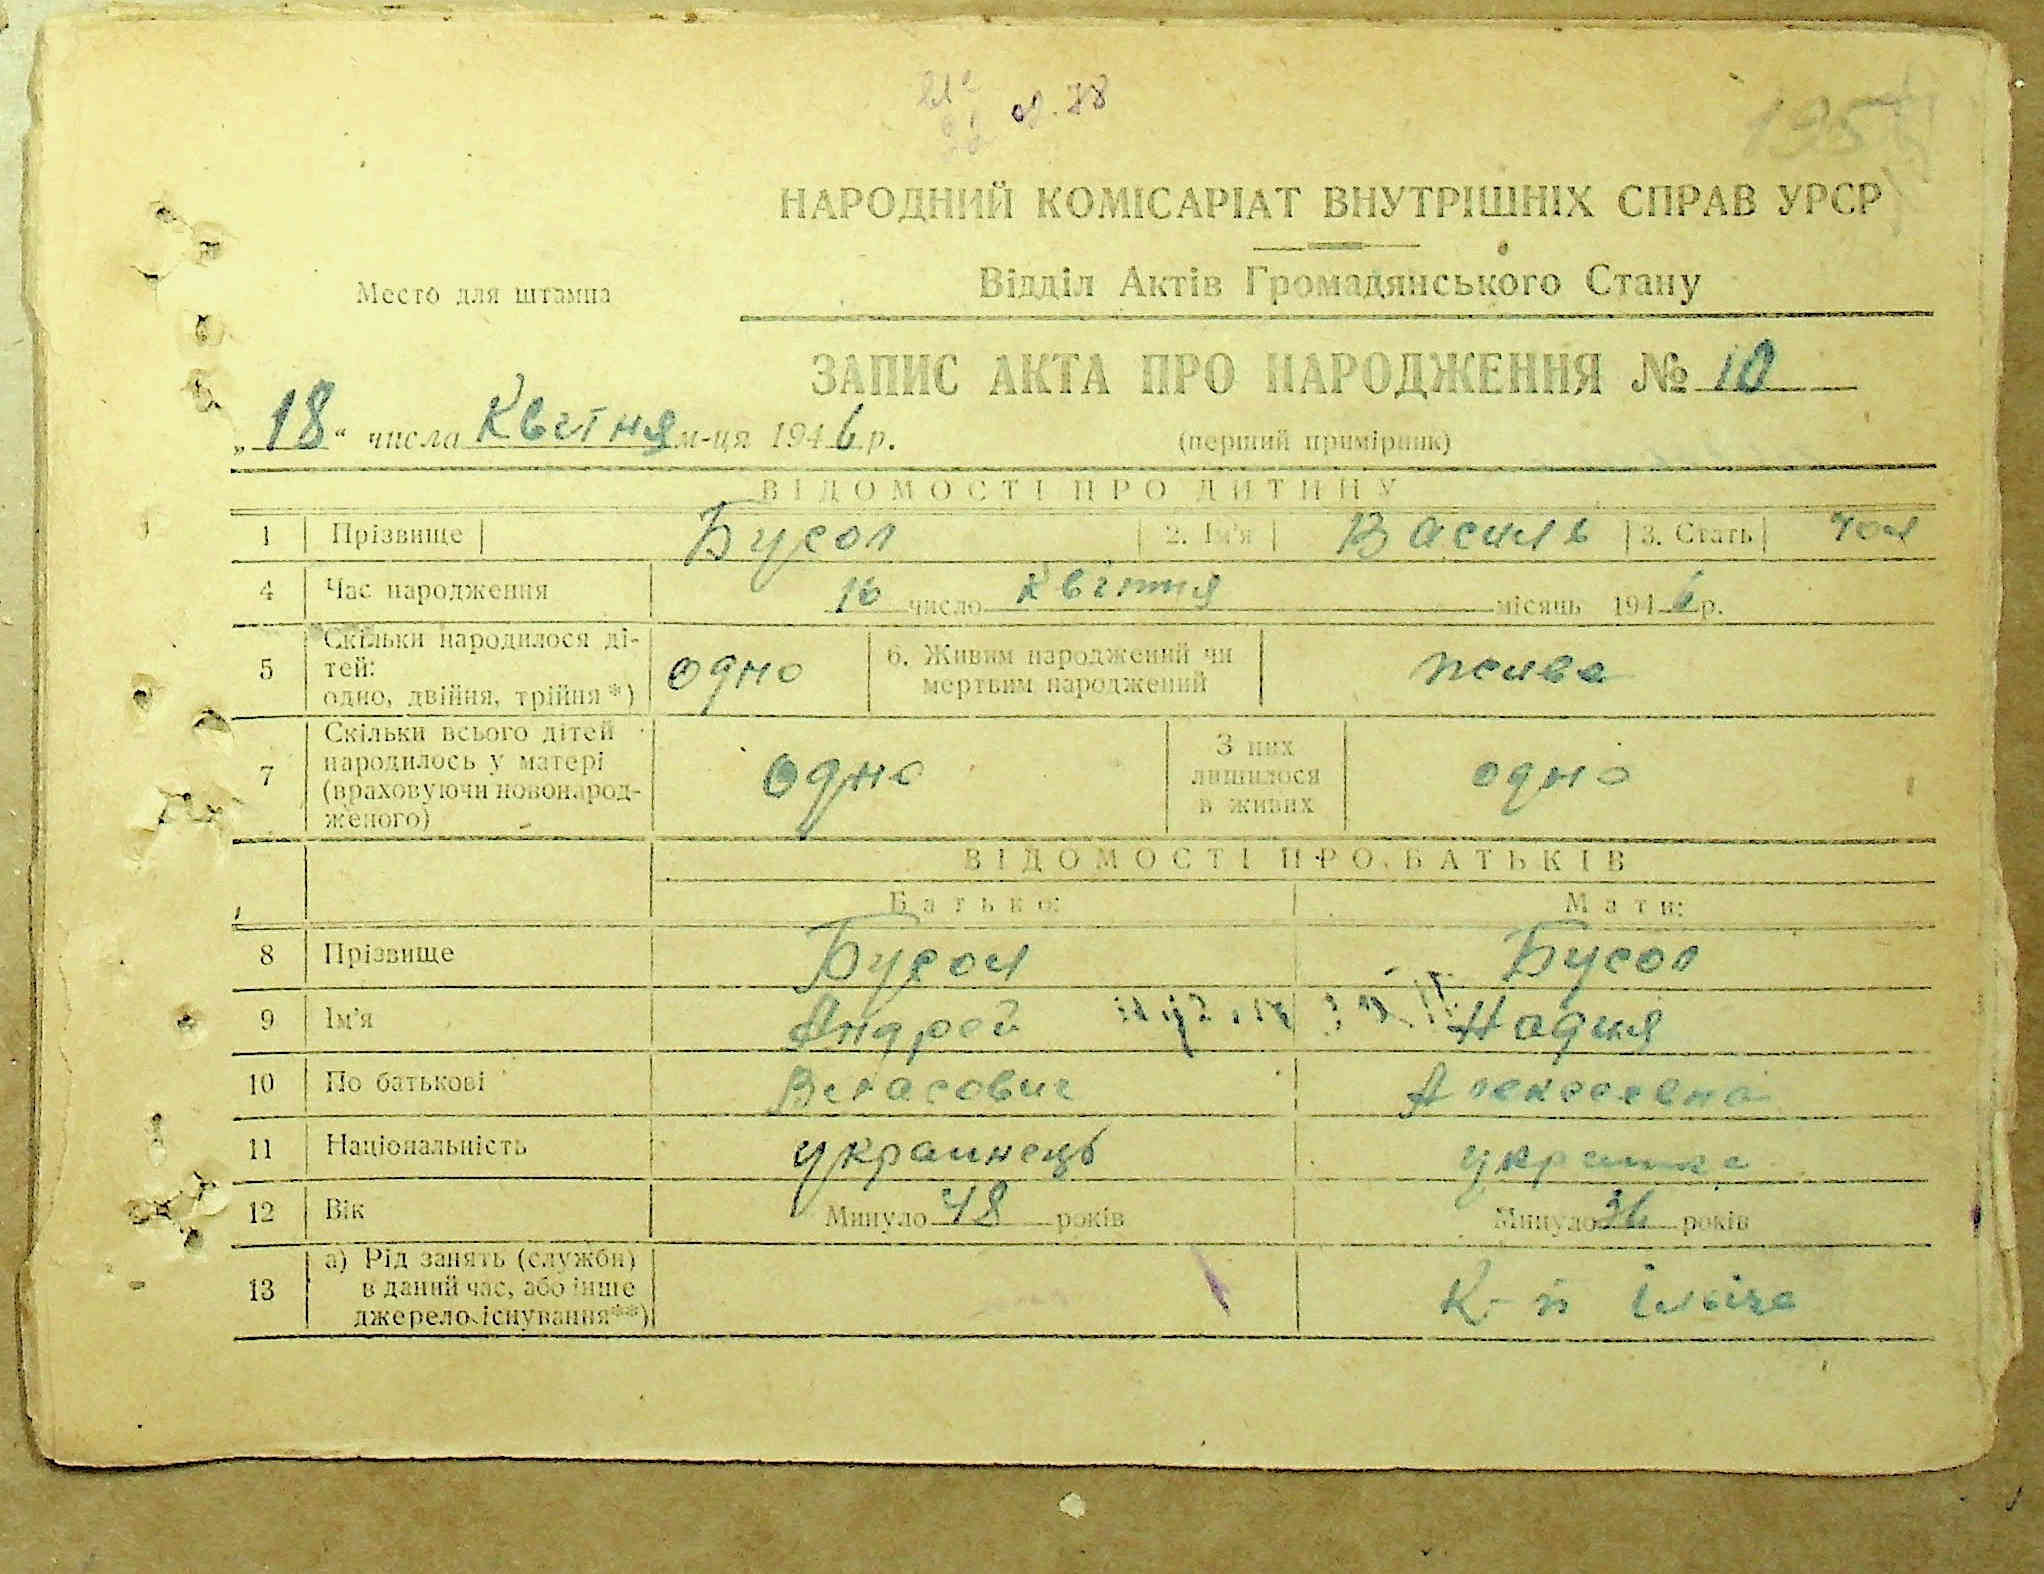 195
НАРОДНИЙ КОМІСАРІАТ ВНУТРІШНІХ СПРАВ УРСР
Место для штампа
Відділ Актів Громадянського Стану
ЗАПИС АКТА ПРО НАРОДЖЕННЯ № 10
„18“ числа Квітня м-ця 1946 р. (перший примірник)
ВІДОМОСТІ ПРО ДИТИНУ
1 Прізвище Бусол 2. Ім'я Василь 3. Стать чол
4 Час народження 16 число квітня місяць 1946 р.
5 Скільки народилося ді-
тей:
одно, двійня, трійня*) одно 6. Живим народжений чи
мертвим народжений живе
7 Скільки всього дітей
народилось у матері
(враховуючи новонарод-
женого) одно З них
лишилося
в живих одно
ВІДОМОСТІ ПРО БАТЬКІВ
Батько: Мати:
8 Прізвище Бусол Бусол
9 Ім'я Андрей Надия
10 По батькові Власович Алексеевна
11 Національність украинець украинка
12 Вік Минуло 48 років Минуло 36 років
13 а) Рід занять (служби)
в даний час, або інше
джерело існування**) К-п